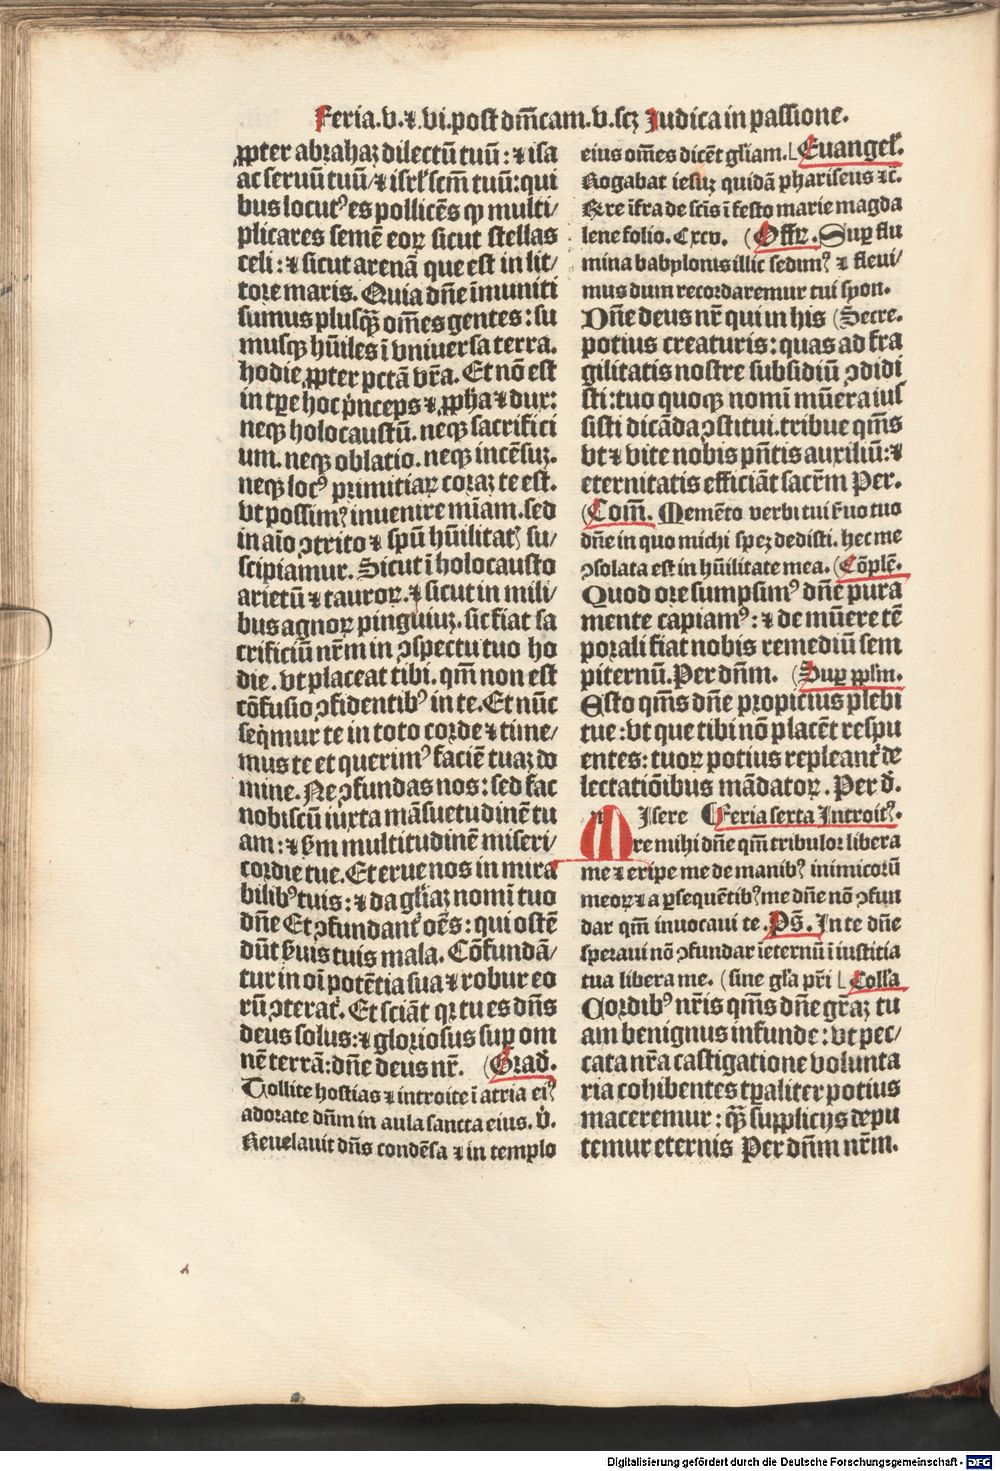 Feria.v.⁊.vi.post dm̄cam.v.scꝫ Judica in passione.
ꝓpter abrahaꝫ dilectū tuū: ⁊ isa
ac seruū tuū/ ⁊ isrl̓ scm̄ tuū: qui
bus locutꝰ es pollicēs ꝙ multi/
plicares semē eoꝝ sicut stellas
celi: ⁊ sicut arenā que est in lit/
tore maris. Quia dn̄e īminuti
sumus plusq̄ꝫ om̄es gentes: su
musqꝫ hūiles ī vniuersa terra.
hodie ꝓpter pctā vr̄a. Et nō est
in tꝑe hoc p̓nceps ⁊ ꝓpha ⁊ dux:
neqꝫ holocaustū. neqꝫ sacrifici
um. neqꝫ oblatio. neqꝫ incēsuꝫ.
neqꝫ locꝰ primitiaꝝ coraꝫ te est.
vt possimꝰ inuenire mīam. sed
in aīo ꝯtrito ⁊ spū hūilitatꝭ su/
scipiamur. Sicut ī holocausto
arietū ⁊ tauroꝝ. ⁊ sicut in mili/
bus agnoꝝ pinguiuꝫ. sic fiat sa
crificiū nr̄m in ꝯspectu tuo ho
die. vt placeat tibi. qm̄ non est
cōfusio ꝯfidentibꝰ in te. Et nūc
seq̓mur te in toto corde ⁊ time/
mus te et querimꝰ faciē tuaꝫ do
mine. Ne ꝯfundas nos: sed fac
nobiscū iuxta māsuetudinē tu
am: ⁊ ẜm multitudinē miseri/
cordie tue. Et erue nos in mira
bilibꝰ tuis: ⁊ da gl̓iaꝫ nomī tuo
dn̄e Et ꝯfundant᷑ oēs: qui ostē
dūt ẜuis tuis mala. Cōfundā/
tur in oī potētia sua ⁊ robur eo
rū ꝯterat᷑. Et sciāt qꝛ tu es dn̄s
deus solus: ⁊ gloriosus suꝑ om
nē terrā: dn̄e deus nr̄. (Grad̓.
Tollite hostias ⁊ introite ī atria eiꝰ
adorate dn̄m in aula sancta eius. v̓.
Reuelauit dn̄s condēsa ⁊ in templo
eius om̄es dicēt gl̓iam. Euangel̓.
Rogabat iesuꝫ quidā phariseus ⁊c̄.
Re re īfra de scīs ī festo marie magda
lene folio. Cxcv. (Offꝝ. Suꝑ flu
mina babylonis illic sedimꝰ ⁊ fleui/
mus dum recordaremur tui syon.
Dn̄e deus nr̄ qui in his (Secre.
potius creaturis: quas ad fra
gilitatis nostre subsidiū ꝯdidi
sti: tuo quoqꝫ nomī mūera ius
sisti dicāda ꝯstitui. tribue qm̄s
vt ⁊ vite nobis pn̄tis auxiliū: ⁊
eternitatis efficiāt sacr̄m Per.
(Com̄. Memēto verbi tui ẜuo tuo
dn̄e in quo michi speꝫ dedisti. hec me
ꝯsolata est in hūilitate mea. (Cōplē.
Quod ore sumpsimꝰ dn̄e pura
mente capiamꝰ: ⁊ de mūere tē
porali fiat nobis remediū sem
piternū. Per dn̄m. (Suꝑ ppl̓m.
Esto qm̄s dn̄e propicius plebi
tue: vt que tibi nō placēt respu
entes: tuoꝝ potius repleant᷑ de
lectatiōibus mādatoꝝ. Per d̓.
MIsere ¶Feria sexta Introitꝰ.
re mihi dn̄e qm̄ tribulor libera
me ⁊ eripe me de manibꝰ inimicorū
meoꝝ ⁊ a ꝑsequētibꝰ me dn̄e nō ꝯfun
dar qm̄ inuocaui te. Ps̄. In te dn̄e
speraui nō ꝯfundar īeternū ī iustitia
tua libera me. (sine gl̓a pr̄i Coll̓a
Cordibꝰ nr̄is qm̄s dn̄e gr̄aꝫ tu
am benignus infunde: vt pec/
cata nr̄a castigatione volunta
ria cohibentes tꝑaliter potius
maceremur: q̄ꝫ supplicijs depu
temur eternis Per dn̄m nr̄m.
Digitalisierung gefördert durch die Deutsche Forschungsgemeinschaft - DFG